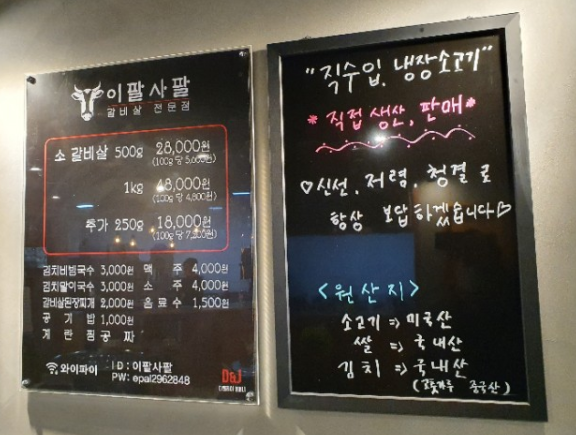 이팔사팔
갈비살 전문점
소 갈비살 500g 28,000원
(100g 당 5,600원)
1kg 48,000원
(100g 당 4,800원)
추가 250g 18,000원
(100g 당 7,200원)
김치비빔국수 3,000원 맥 주 4,000원
김치말이국수 3,000원 소 주 4,000원
갈비살된장찌개 2,000원 음료수 1,500원
공 기 밥 1,000원
계 란 찜 공 짜
와이파이 ID : 이팔사팔
PW: epal2962848
D&J
"직수입, 냉장소고기"
* 직접 생산, 판매 *
♡신선, 저렴, 청결로
항상 보답하겠습니다♡
<원산지>
소고기 => 미국산
쌀 => 국내산
김치 => 국내산
(고춧가루 중국산)